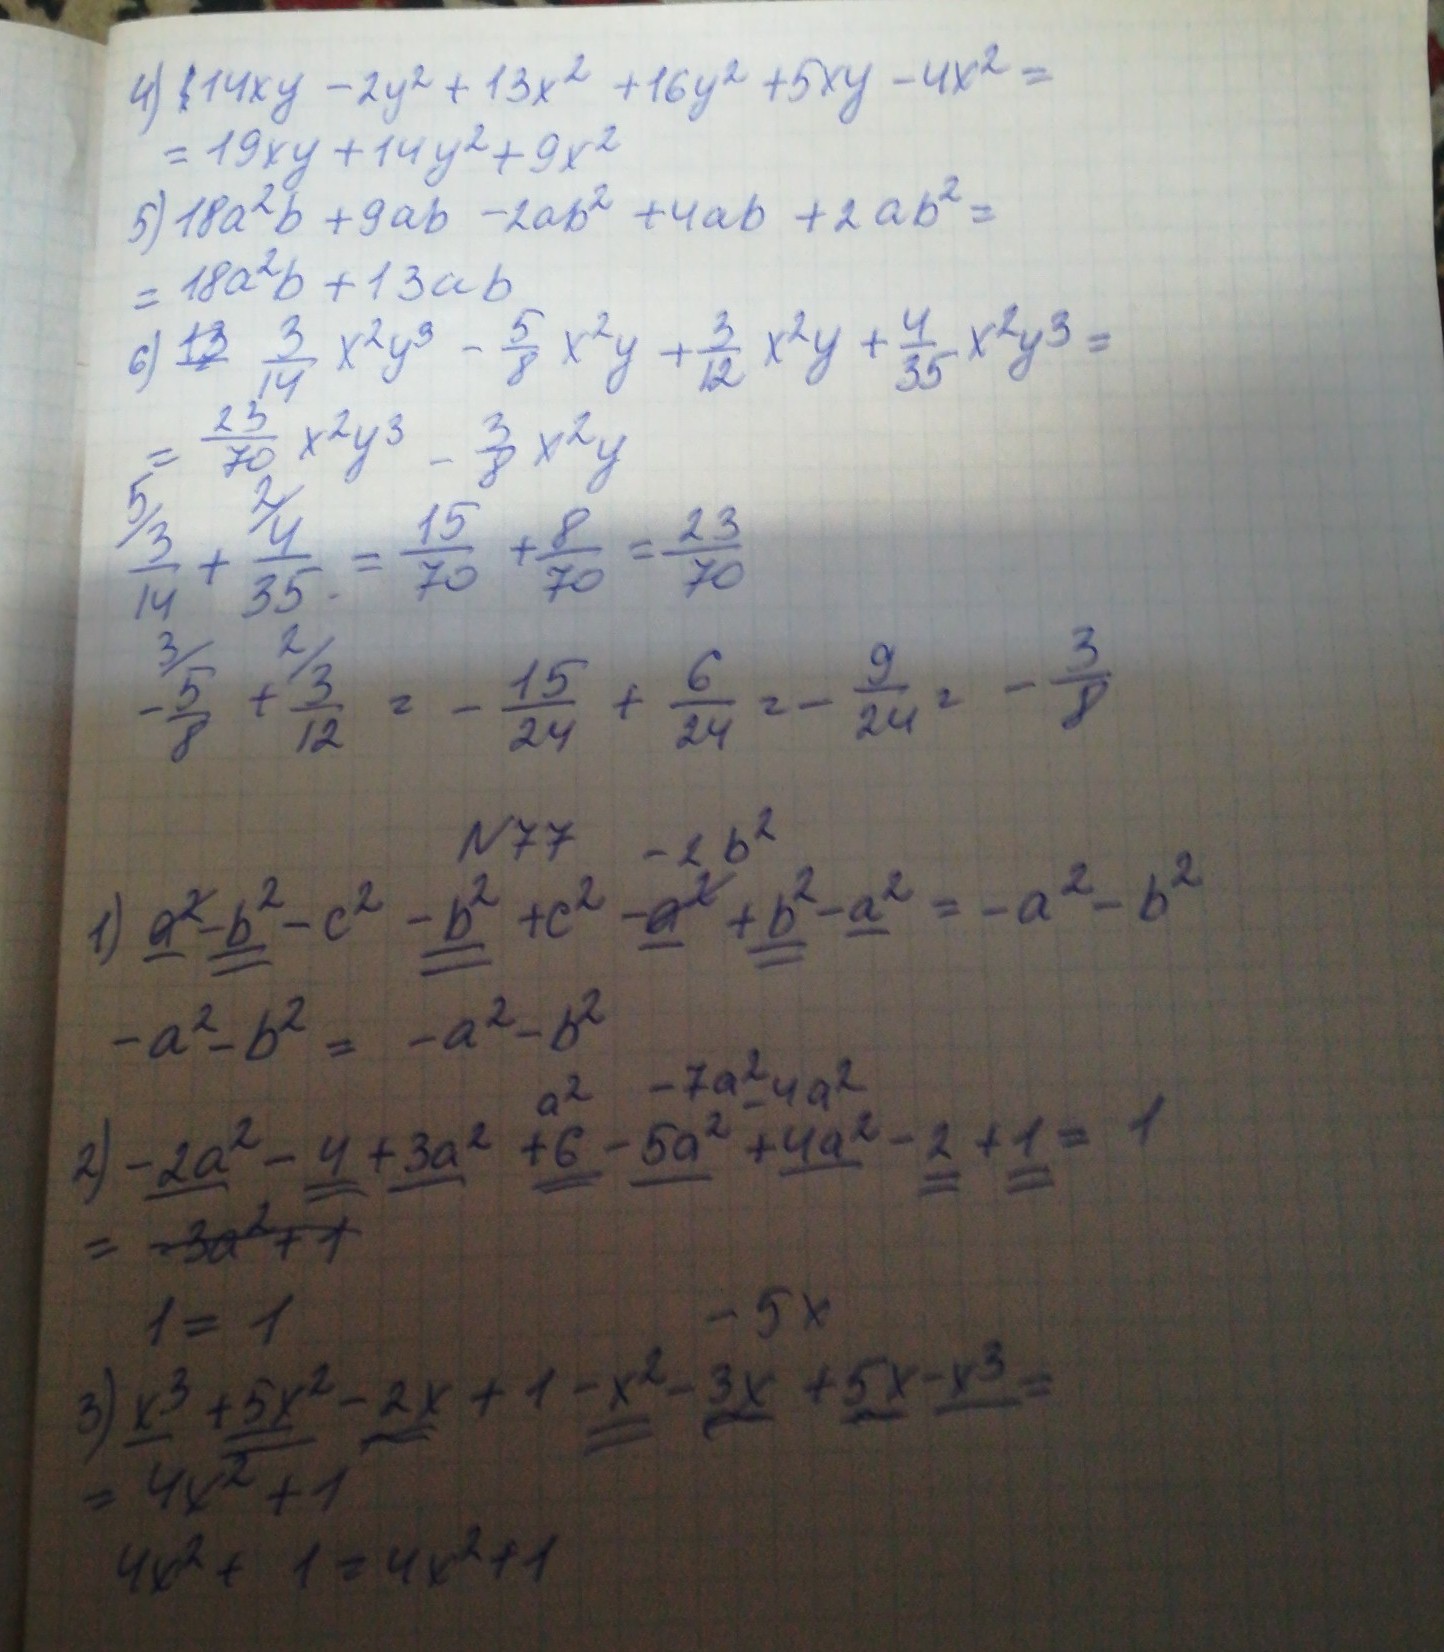 4) 14xy - 2y² + 13x² + 16y² + 5xy - 4x² =
= 19xy + 14y² + 9x²
5) 18a²b + 9ab - 2ab² + 4ab + 2ab² =
= 18a²b + 13ab
6) 13 3/14 x²y³ - 5/8 x²y + 3/12 x²y + 4/35 x²y³ =
= 23/70 x²y³ - 3/8 x²y
5/ 2/
3/14 + 4/35 = 15/70 + 8/70 = 23/70
3/ 2/
- 5/8 + 3/12 = - 15/24 + 6/24 = - 9/24 = - 3/8
N77 -2b²
1) a² - b² - c² - b² + c² - a² + b² - a² = -a² - b²
-a² - b² = -a² - b²
a² -7a² -4a²
2) -2a² - 4 + 3a² + 6 - 5a² + 4a² - 2 + 1 = 1
= -3a² + 1
1 = 1
-5x
3) x³ + 5x² - 2x + 1 - x² - 3x + 5x - x³ =
= 4x² + 1
4x² + 1 = 4x² + 1